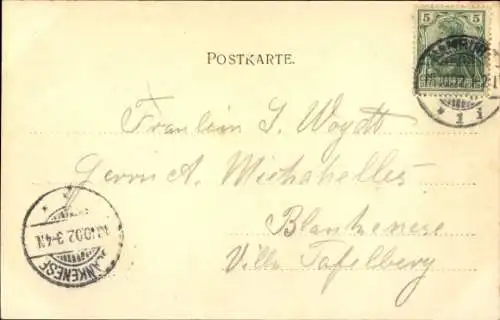 5 5
POSTKARTE.
HAMBURG
* 1 i
Fräulein S. Woydt
Herrn A. Michahelles
Blankenese
Villa Tafelberg
BLANKENESE
10.02.3-4N